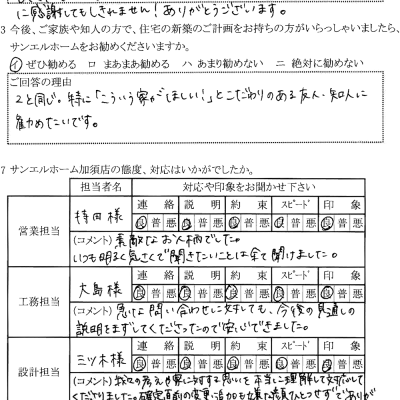 に感謝してもしきれません！ありがとうございます。
3 今後、ご家族や知人の方で、住宅の新築のご計画をお持ちの方がいらっしゃいましたら、
サンエルホームをお勧めくださいますか。
イ ぜひ勧める ロ まあまあ勧める ハ あまり勧めない ニ 絶対に勧めない
ご回答の理由
2と同じ。特に「こういう家がほしい！」とこだわりのある友人・知人に
勧めたいです。
7 サンエルホーム加須店の態度、対応はいかがでしたか。
担当者名 対応や印象をお聞かせ下さい
営業担当 持田様 連絡 説明 約束 スピード 印象
良普悪 良普悪 良普悪 良普悪 良普悪
(コメント) 素敵なお人柄でした。
いつも明るく気さくで聞きたいことは全て聞けました。
工務担当 大島様 連絡 説明 約束 スピード 印象
良普悪 良普悪 良普悪 良普悪 良普悪
(コメント) 急な問い合わせに対しても、今後の見通しの
説明をまずしてくださったので安心できました。
設計担当 三ツ木様 連絡 説明 約束 スピード 印象
良普悪 良普悪 良普悪 良普悪 良普悪
(コメント) 我々の考えや家に対する思いを本当に理解して対応して
くださりました。確定直前の変更・追加も嫌な顔ひとつせずでありが